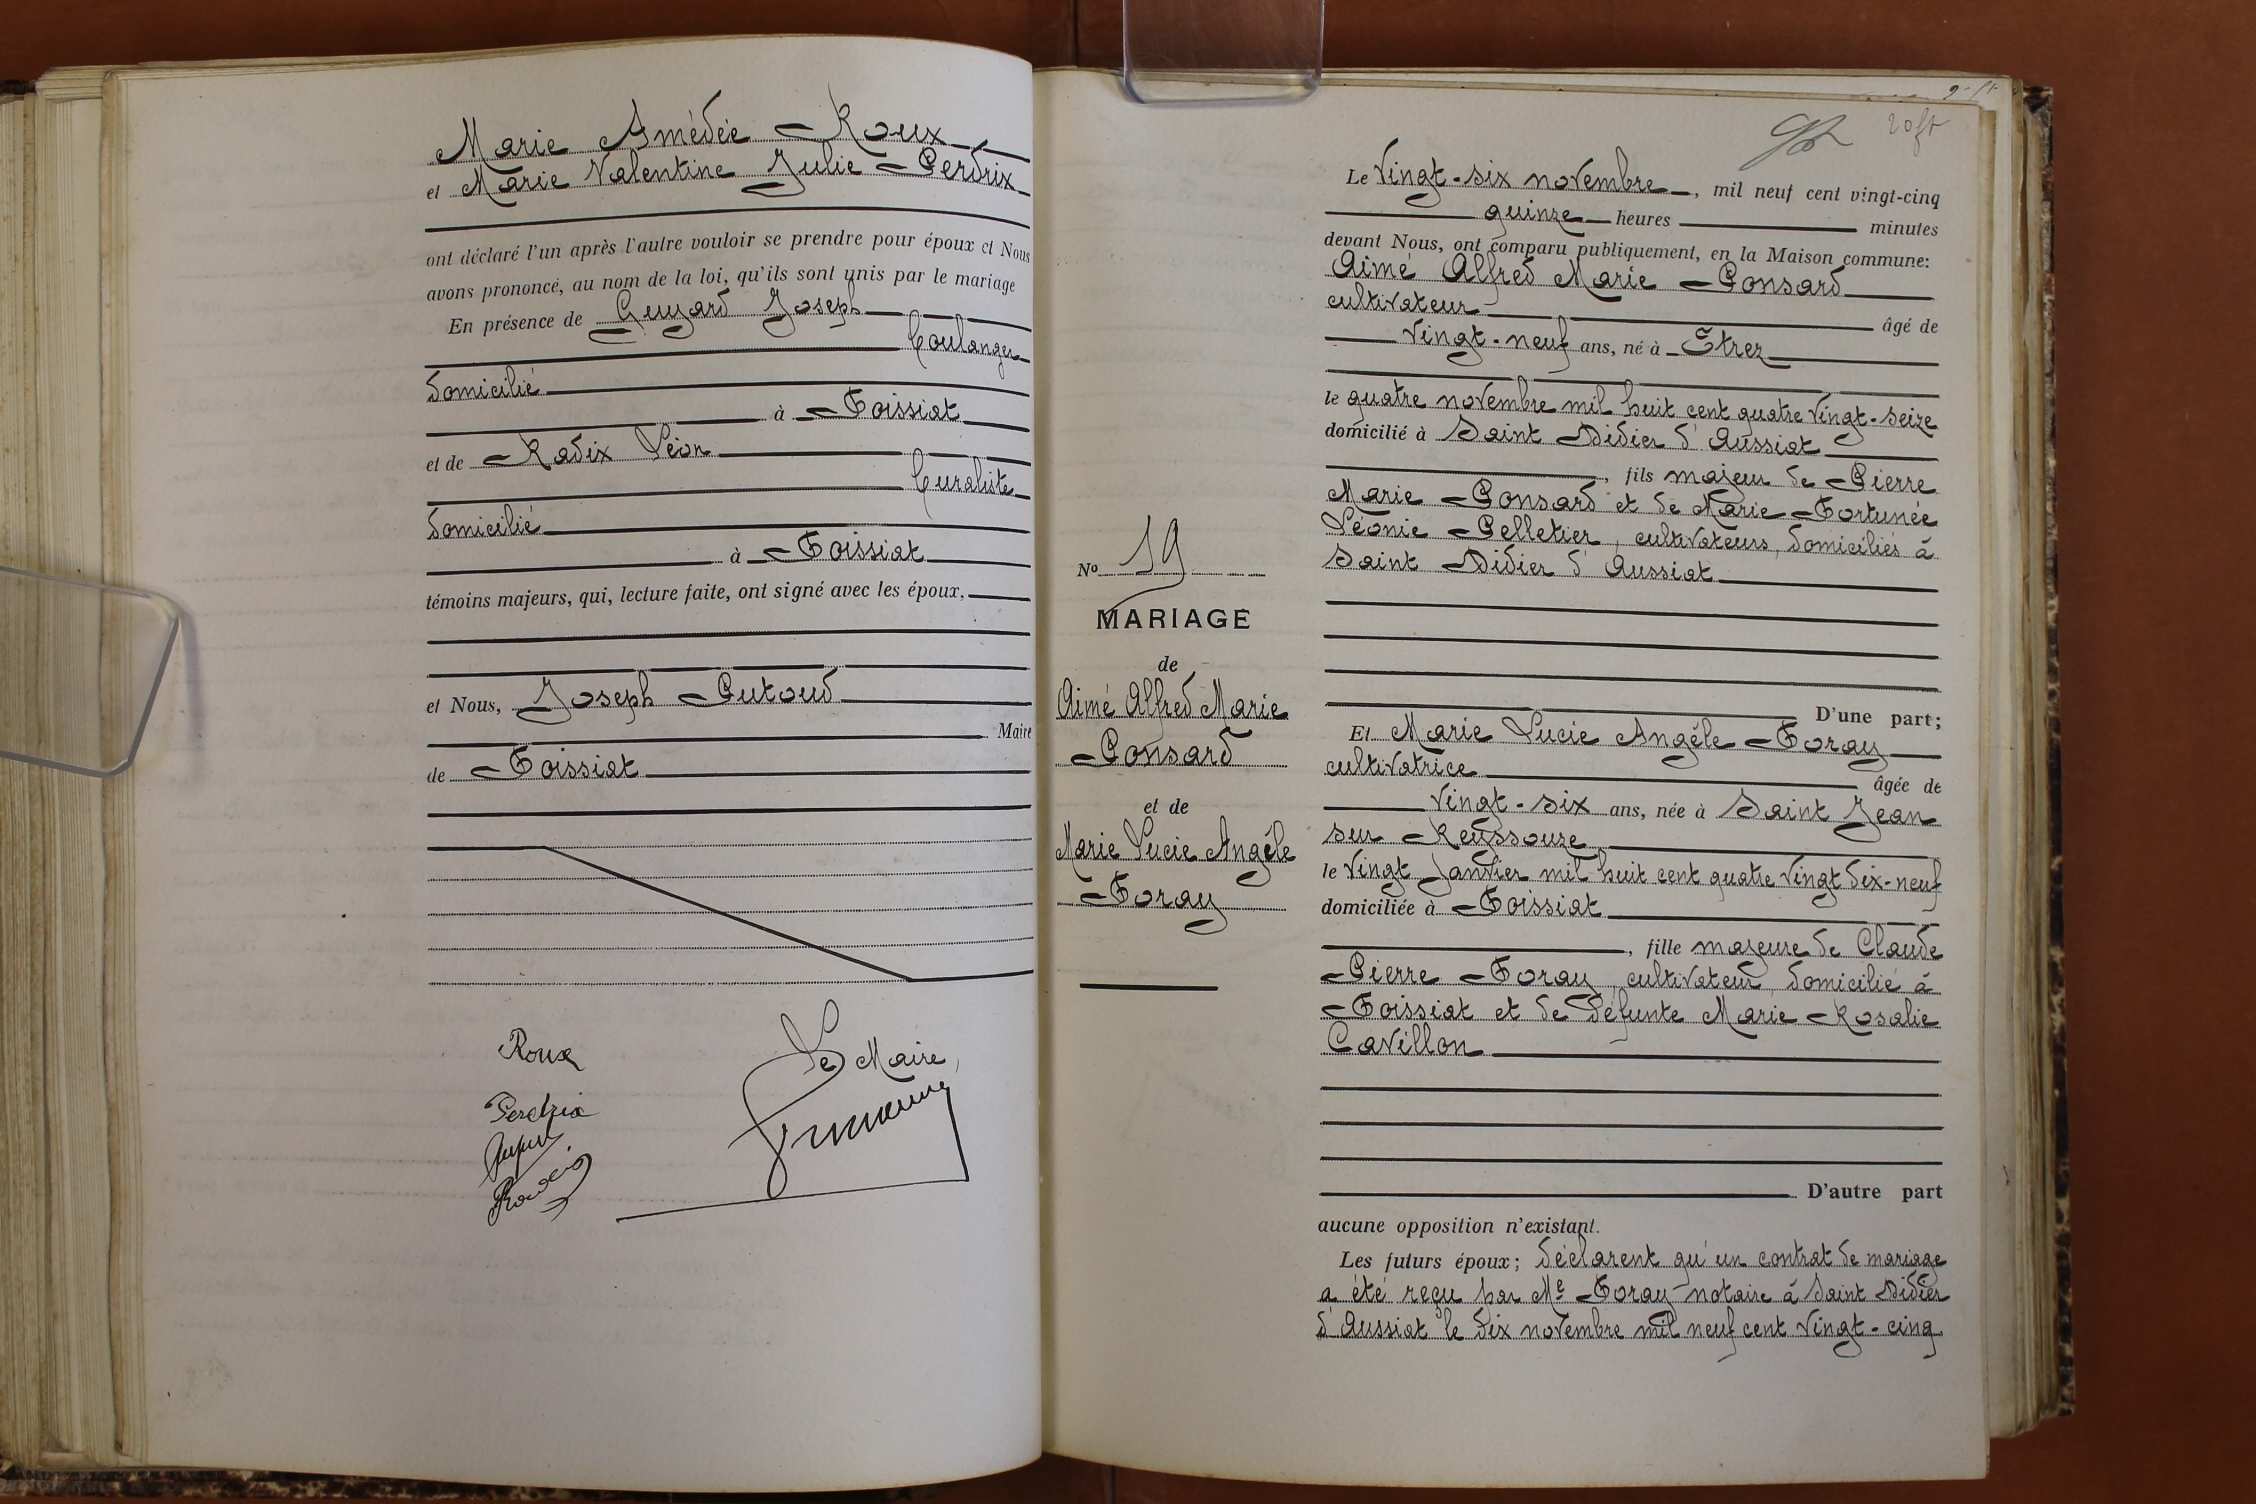 Marie Amédée Roux
et Marie Valentine Julie Perdrix
ont déclaré l'un après l'autre vouloir se prendre pour époux et Nous
avons prononcé, au nom de la loi, qu'ils sont unis par le mariage
En présence de Guyard Joseph
boulanger
domicilié
à Foissiat
et de Radix Léon
buraliste
domicilié
à Foissiat
témoins majeurs, qui, lecture faite, ont signé avec les époux,
et Nous, Joseph Putoud
Maire
de Foissiat
Le Maire,
Roux
Perdrix
Le vingt-six novembre, mil neuf cent vingt-cinq
quinze heures minutes
devant Nous, ont comparu publiquement, en la Maison commune:
Aimé Alfred Marie Ponsard
cultivateur âgé de
vingt-neuf ans, né à Etrez
le quatre novembre mil huit cent quatre vingt-seize
domicilié à Saint Didier d'Aussiat
, fils majeur de Pierre
Marie Ponsard et de Marie Fortunée
Léonie Pelletier, cultivateurs, domiciliés à
Saint Didier d'Aussiat
D'une part;
Nº 19
MARIAGE
de
Aimé Alfred Marie
Ponsard
et de
Marie Lucie Angèle
Foray
Et Marie Lucie Angèle Foray
cultivatrice âgée de
vingt-six ans, née à Saint Jean
sur Reyssouze
le vingt Janvier mil huit cent quatre vingt dix-neuf
domiciliée à Foissiat
, fille majeure de Claude
Pierre Foray, cultivateur, domicilié à
Foissiat et de défunte Marie Rosalie
Cavillon
D'autre part
aucune opposition n'existant.
Les futurs époux; déclarent qu'un contrat de mariage
a été reçu par Me Foray notaire à Saint Didier
d'Aussiat le dix novembre mil neuf cent vingt-cinq